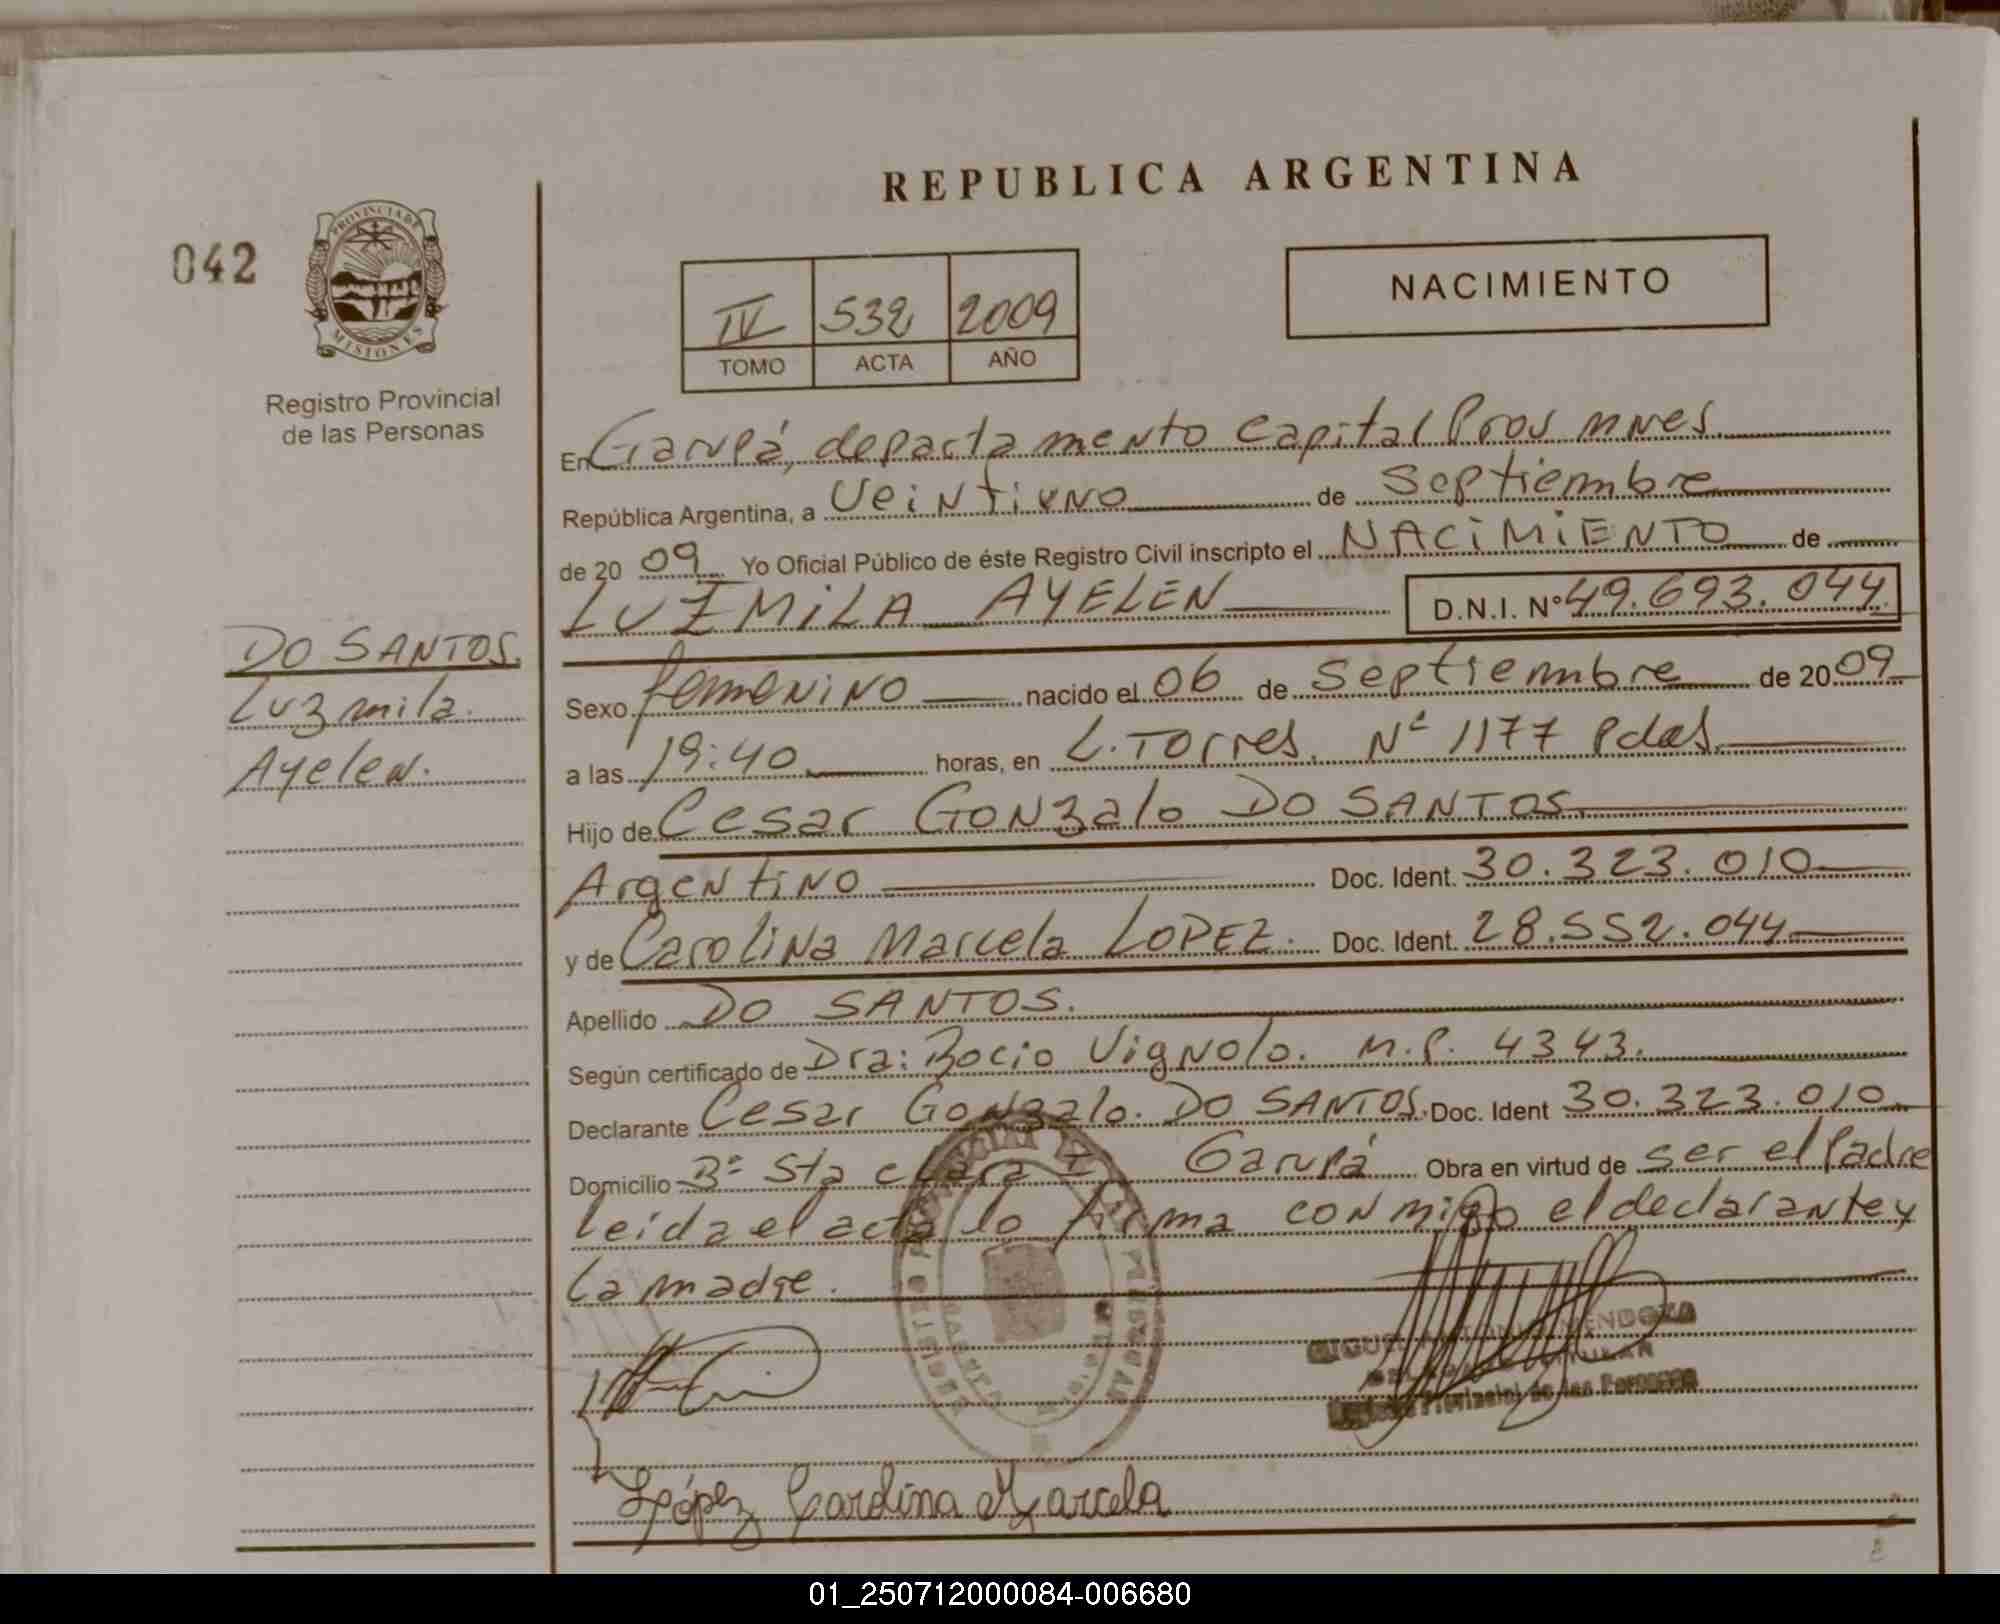 REPUBLICA ARGENTINA
042
PROVINCIA DE
MISIONES
Registro Provincial
de las Personas
IV 532 2009
TOMO ACTA AÑO
NACIMIENTO
En Garupá, departamento Capital Prov mnes.
República Argentina, a Veintiuno de Septiembre
de 2009 Yo Oficial Público de éste Registro Civil inscripto el NACIMIENTO de
LUZMILA AYELEN D.N.I. Nº 49.693.044
DO SANTOS.
Luzmila
Ayelen.
Sexo femenino nacido el 06 de Septiembre de 2009
a las 19:40 horas, en L. Torres. Nº 1177 Pdas.
Hijo de Cesar Gonzalo DO SANTOS.
Argentino Doc. Ident. 30.323.010
y de Carolina Marcela LOPEZ. Doc. Ident. 28.552.044
Apellido DO SANTOS.
Según certificado de Dra: Rocio Vignolo. M.P. 4343.
Declarante Cesar Gonzalo. DO SANTOS. Doc. Ident 30.323.010
Domicilio Bº Sta Clara I Garupá Obra en virtud de ser el Padre
Leida el acta lo firma conmigo el declarante y
la madre.
MIGUEL ANTONIO MENDOZA
DELEGADO TITULAR
Registro Provincial de las Personas
López Carolina Marcela
01_250712000084-006680